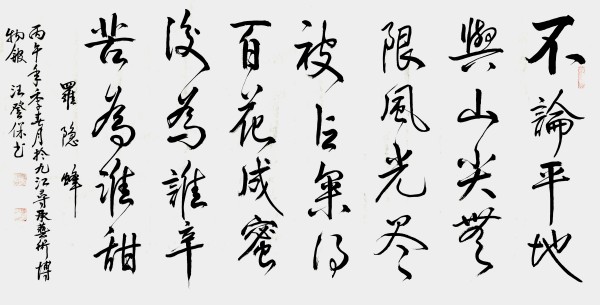 不論平地
與山尖無
限風光盡
被占采得
百花成蜜
後為誰辛
苦為誰甜
羅隱蜂
丙午年季春月於九江尋藝術博
物館 汪登保書